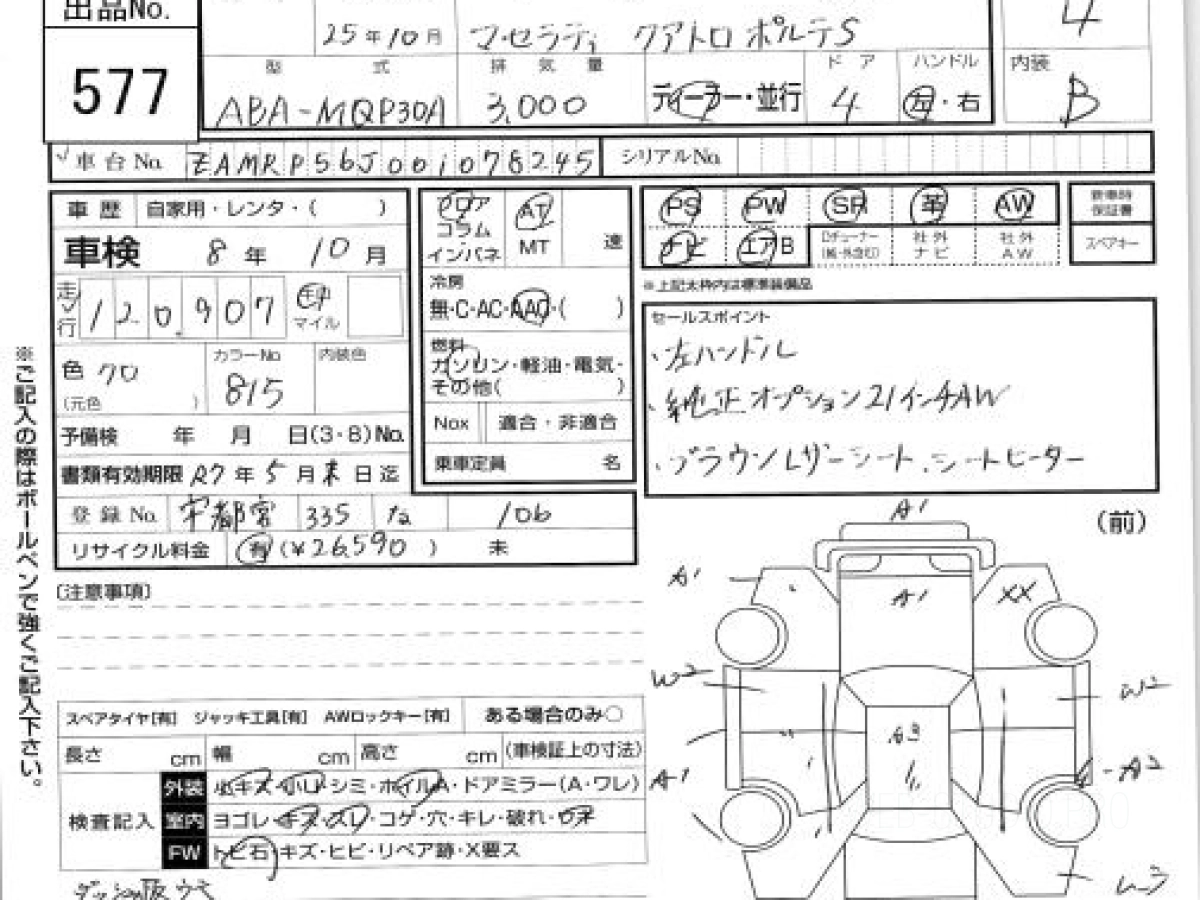 出品No.
577
25年10月 マセラティ クアトロポルテS
4
型 式 排 気 量 ドア ハンドル 内装
ABA-MQP30A 3,000 ディーラー・並行 4 左・右 B
車台No. ZAMRP56J001078245 シリアルNo.
車歴 自家用・レンタ・( )
車検 8年 10月
走行 120,907 キロ マイル
色 クロ (元色 )
カラーNo. 815
内装色
予備検 年 月 日(3・8)No.
書類有効期限 R7年 5月末日迄
登録No. 宇都宮 335 106
リサイクル料金 有(¥26,590) 未
フロア コラム インパネ
AT MT 速
冷房
無・C・AC・AAC・( )
燃料
ガソリン・軽油・電気・
その他( )
Nox 適合・非適合
乗車定員 名
PS PW SR 革 AW
ナビ エアB 社外ナビ 社外AW
新車時保証書
スペアキー
※上記太枠内は標準装備品
セールスポイント
・左ハンドル
・純正オプション21インチAW
・ブラウンレザーシート、シートヒーター
※ご記入の際はボールペンで強くご記入下さい。
〔注意事項〕
(前)
A1
A1
A1
XX
W2
W2
A3
A1
A2
スペアタイヤ[有] ジャッキ工具[有] AWロックキー[有] ある場合のみ○
長さ cm 幅 cm 高さ cm (車検証上の寸法)
検査記入
外装 小キズ・小U・シミ・ホイルA・ドアミラー(A・ワレ)
室内 ヨゴレ・キズ・スレ・コゲ・穴・キレ・破れ
FW トビ石・キズ・ヒビ・リペア跡・X要ス